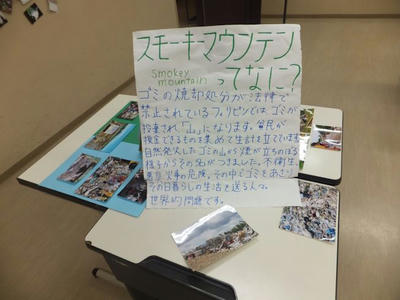 スモーキーマウンテン
smokey
mountain
ってなに?
ゴミの焼却処分が法律で
禁止されているフィリピンでは、ゴミが
投棄され「山」になります。貧民が
換金できるものを集めて生計を立てています。
自然発火したゴミの山から煙が立ちのぼる
様子からその名がつきました。不衛生
火事の危険。その中でゴミをあさり
その日暮らしの生活を送る人々。
問題です。